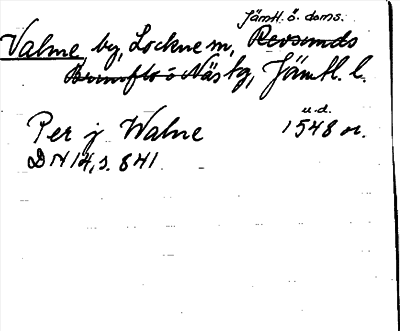 Jämtl. ö. doms.
Valne, by, Lockne sn, Revsunds
Brunflo o Näs tg, Jämtl. l.
u.d.
Per j Walne 1548 or.
DN 14, s. 841